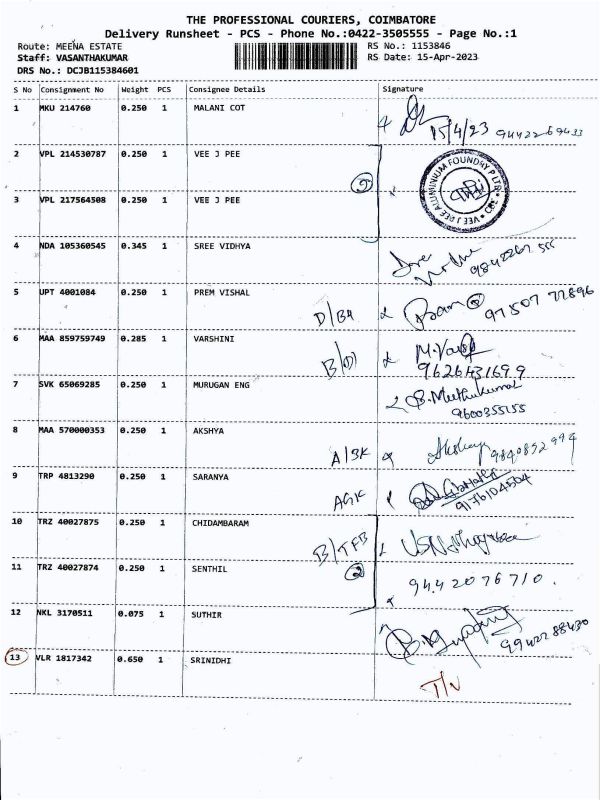 THE PROFESSIONAL COURIERS, COIMBATORE
Delivery Runsheet - PCS - Phone No.:0422-3505555 - Page No.:1
Route: MEENA ESTATE RS No.: 1153846
Staff: VASANTHAKUMAR RS Date: 15-Apr-2023
DRS No.: DCJB115384601
S No Consignment No Weight PCS Consignee Details Signature
1 MKU 214760 0.250 1 MALANI COT
15/4/23 9442269433
2 VPL 214530787 0.250 1 VEE J PEE
VEE J PEE ALUMINIUM FOUNDRY P LTD CBE
2
3 VPL 217564508 0.250 1 VEE J PEE
4 NDA 105360545 0.345 1 SREE VIDHYA
9842267 555
5 UPT 4001084 0.250 1 PREM VISHAL
D/B4 97507 77896
6 MAA 859759749 0.285 1 VARSHINI
B/D1 M.Varsh
9626431699
7 SVK 65069285 0.250 1 MURUGAN ENG
B.Muthukumar
9600355155
8 MAA 570000353 0.250 1 AKSHYA
A/3K Akshaya 9840892994
9 TRP 4813290 0.250 1 SARANYA
AGK 9176104504
10 TRZ 40027875 0.250 1 CHIDAMBARAM
B/TFB
11 TRZ 40027874 0.250 1 SENTHIL
2 9442076710.
12 NKL 3170511 0.075 1 SUTHIR
9942288430
13 VLR 1817342 0.650 1 SRINIDHI
T/N